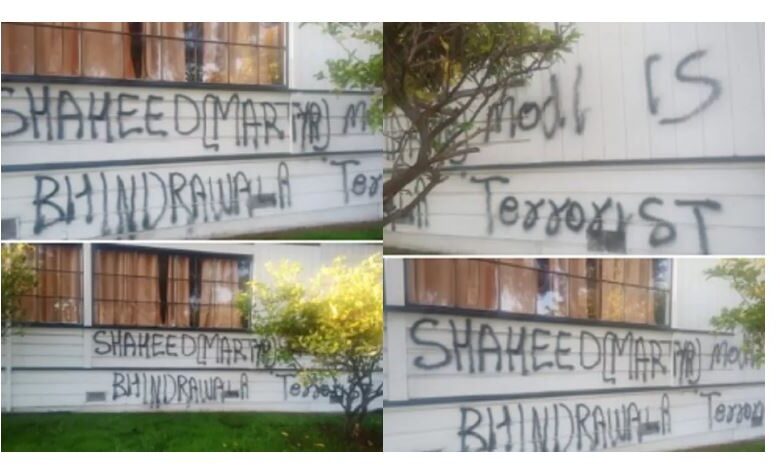 SHAHEED[MARTYR] M
BHINDRAWALA Ter
Modi IS
TerrorIST
SHAHEED[MARTYR]
BHINDRAWALA
SHAHEED[MARTYR] Mod
BHINDRAWALA Terror